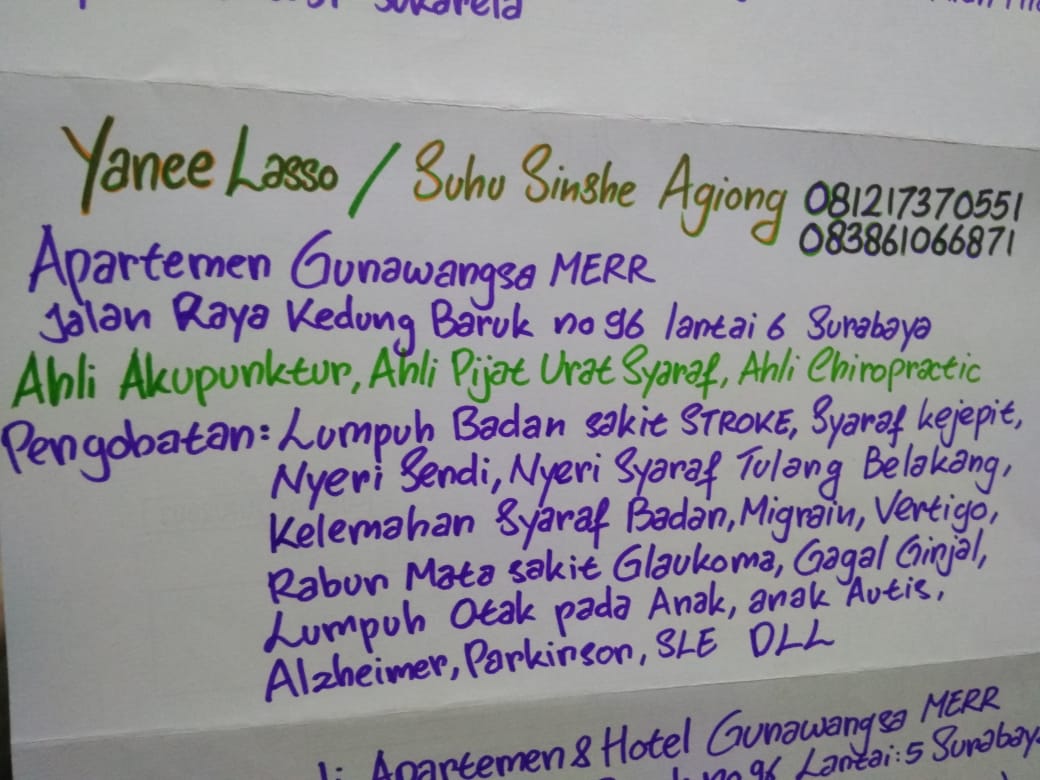 Sukarela
Yanee Lasso / Suhu Sinshe Agiong 081217370551
083861066871
Apartemen Gunawangsa MERR
Jalan Raya Kedung Baruk no 96 lantai 6 Surabaya
Ahli Akupunktur, Ahli Pijat Urat Syaraf, Ahli Chiropractic
Pengobatan: Lumpuh Badan sakit STROKE, Syaraf kejepit,
Nyeri Sendi, Nyeri Syaraf Tulang Belakang,
Kelemahan Syaraf Badan, Migrain, Vertigo,
Rabun Mata sakit Glaukoma, Gagal Ginjal,
Lumpuh Otak pada Anak, anak Autis,
Alzheimer, Parkinson, SLE DLL
Apartemen & Hotel Gunawangsa MERR
no 96 Lantai: 5 Surabaya